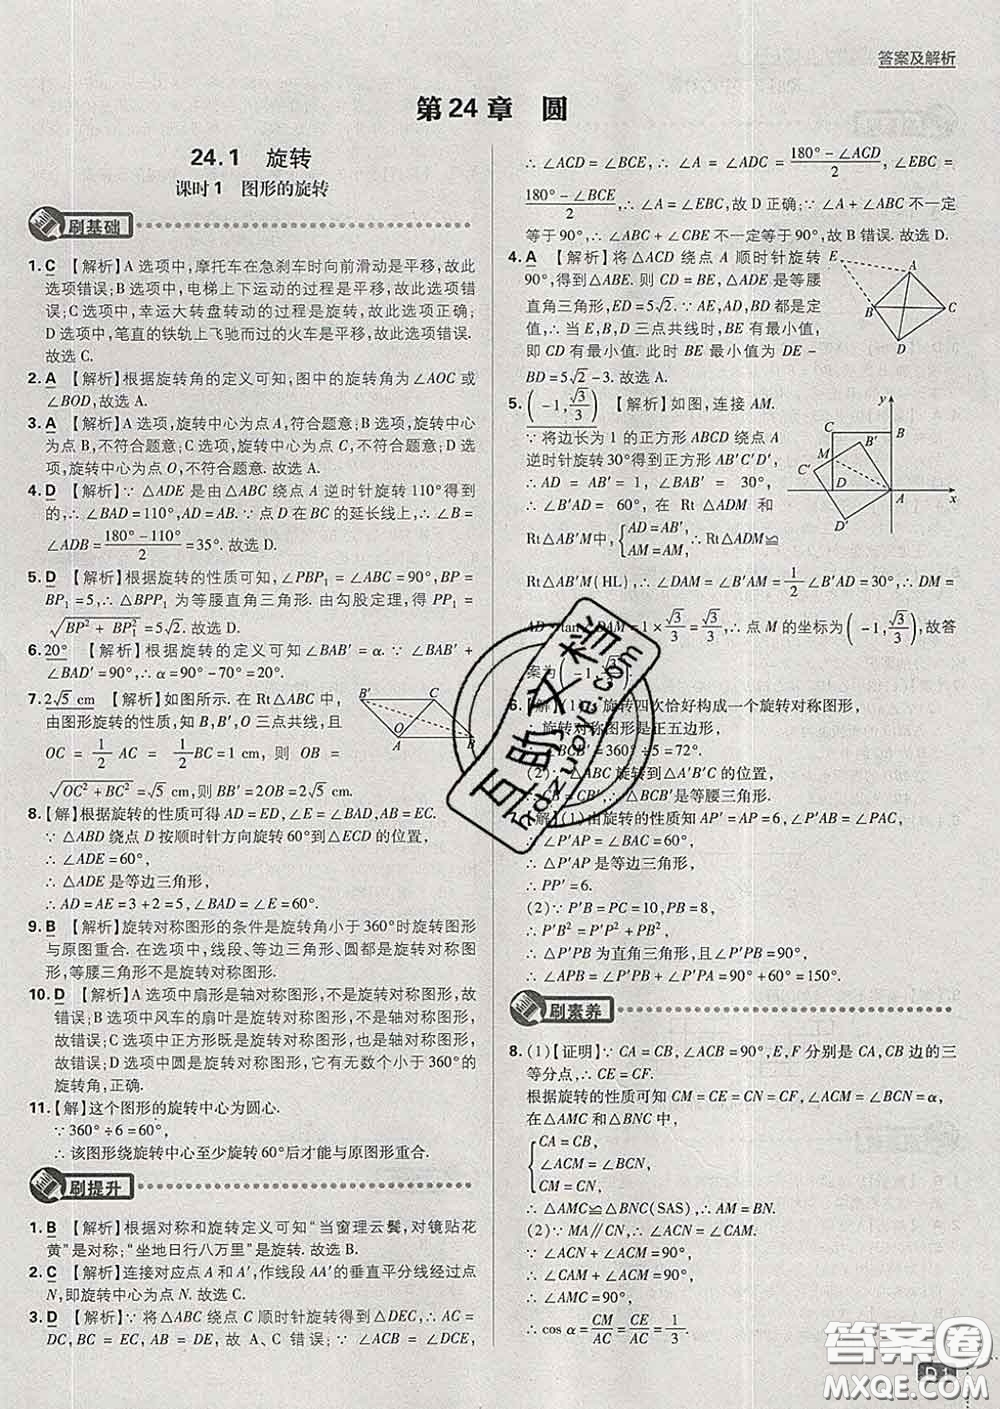 答案及解析
第24章 圆
24.1 旋转
课时1 图形的旋转
刷基础
1. C 【解析】A选项中,摩托车在急刹车时向前滑动是平移,故此
选项错误;B选项中,电梯上下运动的过程是平移,故此选项错
误;C选项中,幸运大转盘转动的过程是旋转,故此选项正确;
D选项中,笔直的铁轨上飞驰而过的火车是平移,故此选项错误.
故选C.
2. A 【解析】根据旋转角的定义可知,图中的旋转角为∠AOC或
∠BOD,故选A.
3. A 【解析】A选项,旋转中心为点A,符合题意;B选项,旋转中心
为点B,不符合题意;C选项,旋转中心为点C,不符合题意;D选
项,旋转中心为点O,不符合题意.故选A.
4. D 【解析】∵△ADE是由△ABC绕点A逆时针旋转110°得到
的,∴∠BAD=110°,AD=AB.∵点D在BC的延长线上,∴∠B=
∠ADB=(180°-110°)/2=35°.故选D.
5. D 【解析】根据旋转的性质可知,∠PBP₁=∠ABC=90°,BP=
BP₁=5,∴△BPP₁为等腰直角三角形.由勾股定理,得PP₁=
√(BP²+BP₁²)=5√2.故选D.
6. 20° 【解析】根据旋转的定义可知,∠BAB'=α.∵∠BAB'+
∠B'AD=∠BAD=90°,∴α=90°-70°=20°.
7. 2√5 cm 【解析】如图所示.在Rt△ABC中,
由图形旋转的性质,知B,B',O三点共线,且
OC=1/2 AC=1/2 BC=1 cm,则OB=
√(OC²+BC²)=√5 cm,则BB'=2OB=2√5 cm.
B' C O A B
8.【解】根据旋转的性质可得AD=ED,∠E=∠BAD,AB=EC.
∵△ABD绕点D按顺时针方向旋转60°到△ECD的位置,
∴∠ADE=60°,
∴△ADE是等边三角形,
∴AD=AE=3+2=5,∠BAD=∠E=60°.
9. B 【解析】旋转对称图形的条件是旋转角小于360°时旋转图形
与原图重合.在选项中,线段、等边三角形、圆都是旋转对称图
形,等腰三角形不是旋转对称图形.
10. D 【解析】A选项中扇形是轴对称图形,不是旋转对称图形,故
错误;B选项中风车的扇叶是旋转对称图形,不是轴对称图形,
故错误;C选项中正方形既是旋转对称图形,又是轴对称图形,
故错误;D选项中圆是旋转对称图形,它有无数个小于360°的
旋转角,正确.
11.【解】这个图形的旋转中心为圆心.
∵360°÷6=60°,
∴该图形绕旋转中心至少旋转60°后才能与原图形重合.
刷提升
1. B 【解析】根据对称和旋转定义可知“当窗理云鬓,对镜贴花
黄”是对称;“坐地日行八万里”是旋转.故选B.
2. C 【解析】连接对应点A和A',作线段AA'的垂直平分线经过点
N,即旋转中心为点N.故选C.
3. D 【解析】∵将△ABC绕点C顺时针旋转得到△DEC,∴AC=
DC,BC=EC,故A、C错误;∴∠ACD=∠BCE,
∴∠ACD=∠BCE,∴∠A=∠ADC=(180°-∠ACD)/2,∠EBC=
(180°-∠BCE)/2,∴∠A=∠EBC,故D正确;∵∠A+∠ABC不一定
等于90°,∴∠ABC+∠CBE不一定等于90°,故B错误.故选D.
4. A 【解析】将△ADC绕点A顺时针旋转
90°,得到△ABE.则CD=BE,△ADE是等腰
直角三角形,ED=5√2.∵AE,AD,BD是定
值,∴当E,B,D三点共线时,BE有最小值,
即CD有最小值.此时BE最小值为DE-
BD=5√2-3.故选A.
E A B C D
5. (-1,√3/3) 【解析】如图,连接AM.
∵将边长为1的正方形ABCD绕点A
逆时针旋转30°得到正方形AB'C'D',
∴AD=AB'=1,∠BAB'=30°,
∴∠B'AD=60°,在Rt△ADM和
Rt△AB'M中,{AD=AB', AM=AM, ∴Rt△ADM≌
Rt△AB'M(HL),∴∠DAM=∠B'AM=1/2∠B'AD=30°,∴DM=
AD·tan∠DAM=1×√3/3=√3/3,∴点M的坐标为(-1,√3/3),故答
案为(-1,√3/3).
y C B B' M C' D A x D'
6.【解】(1)∵旋转四次恰好构成一个旋转对称图形,
∴旋转对称图形是正五边形,
∴∠BCB'=360°÷5=72°.
(2)∵△ABC旋转到△A'B'C的位置,
∴CB=CB',∴△BCB'是等腰三角形.
【解】(1)由旋转的性质知AP'=AP=6,∠P'AB=∠PAC,
∴∠P'AP=∠BAC=60°,
∴△P'AP是等边三角形,
∴PP'=6.
(2)∵P'B=PC=10,PB=8,
∴P'B²=P'P²+PB²,
∴△P'PB为直角三角形,且∠P'PB=90°,
∴∠APB=∠P'PB+∠P'PA=90°+60°=150°.
刷素养
8. (1)【证明】∵CA=CB,∠ACB=90°,E,F分别是CA,CB边的三
等分点,∴CE=CF.
根据旋转的性质可知CM=CE=CN=CF,∠ACM=∠BCN=α,
在△AMC和△BNC中,
{CA=CB,
∠ACM=∠BCN,
CM=CN,
∴△AMC≌△BNC(SAS),∴AM=BN.
(2)∵MA∥CN,∴∠ACN=∠CAM.
∵∠ACN+∠ACM=90°,
∴∠CAM+∠ACM=90°,
∴∠AMC=90°,
∴cos α=CM/AC=CE/AC=1/3.
互助文档
hdzuoye.com
答案圈
MXQE.COM
D1